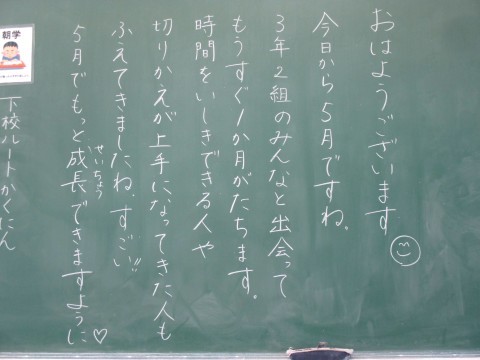 おはようございます
今日から5月ですね。
3年2組のみんなと出会って
もうすぐ1か月がたちます。
時間をいしきできる人や
切りかえが上手になってきた人も
ふえてきましたね。すごい!!
5月でもっと成長できますように♡
せいちょう
朝学
下校ルートかくにん